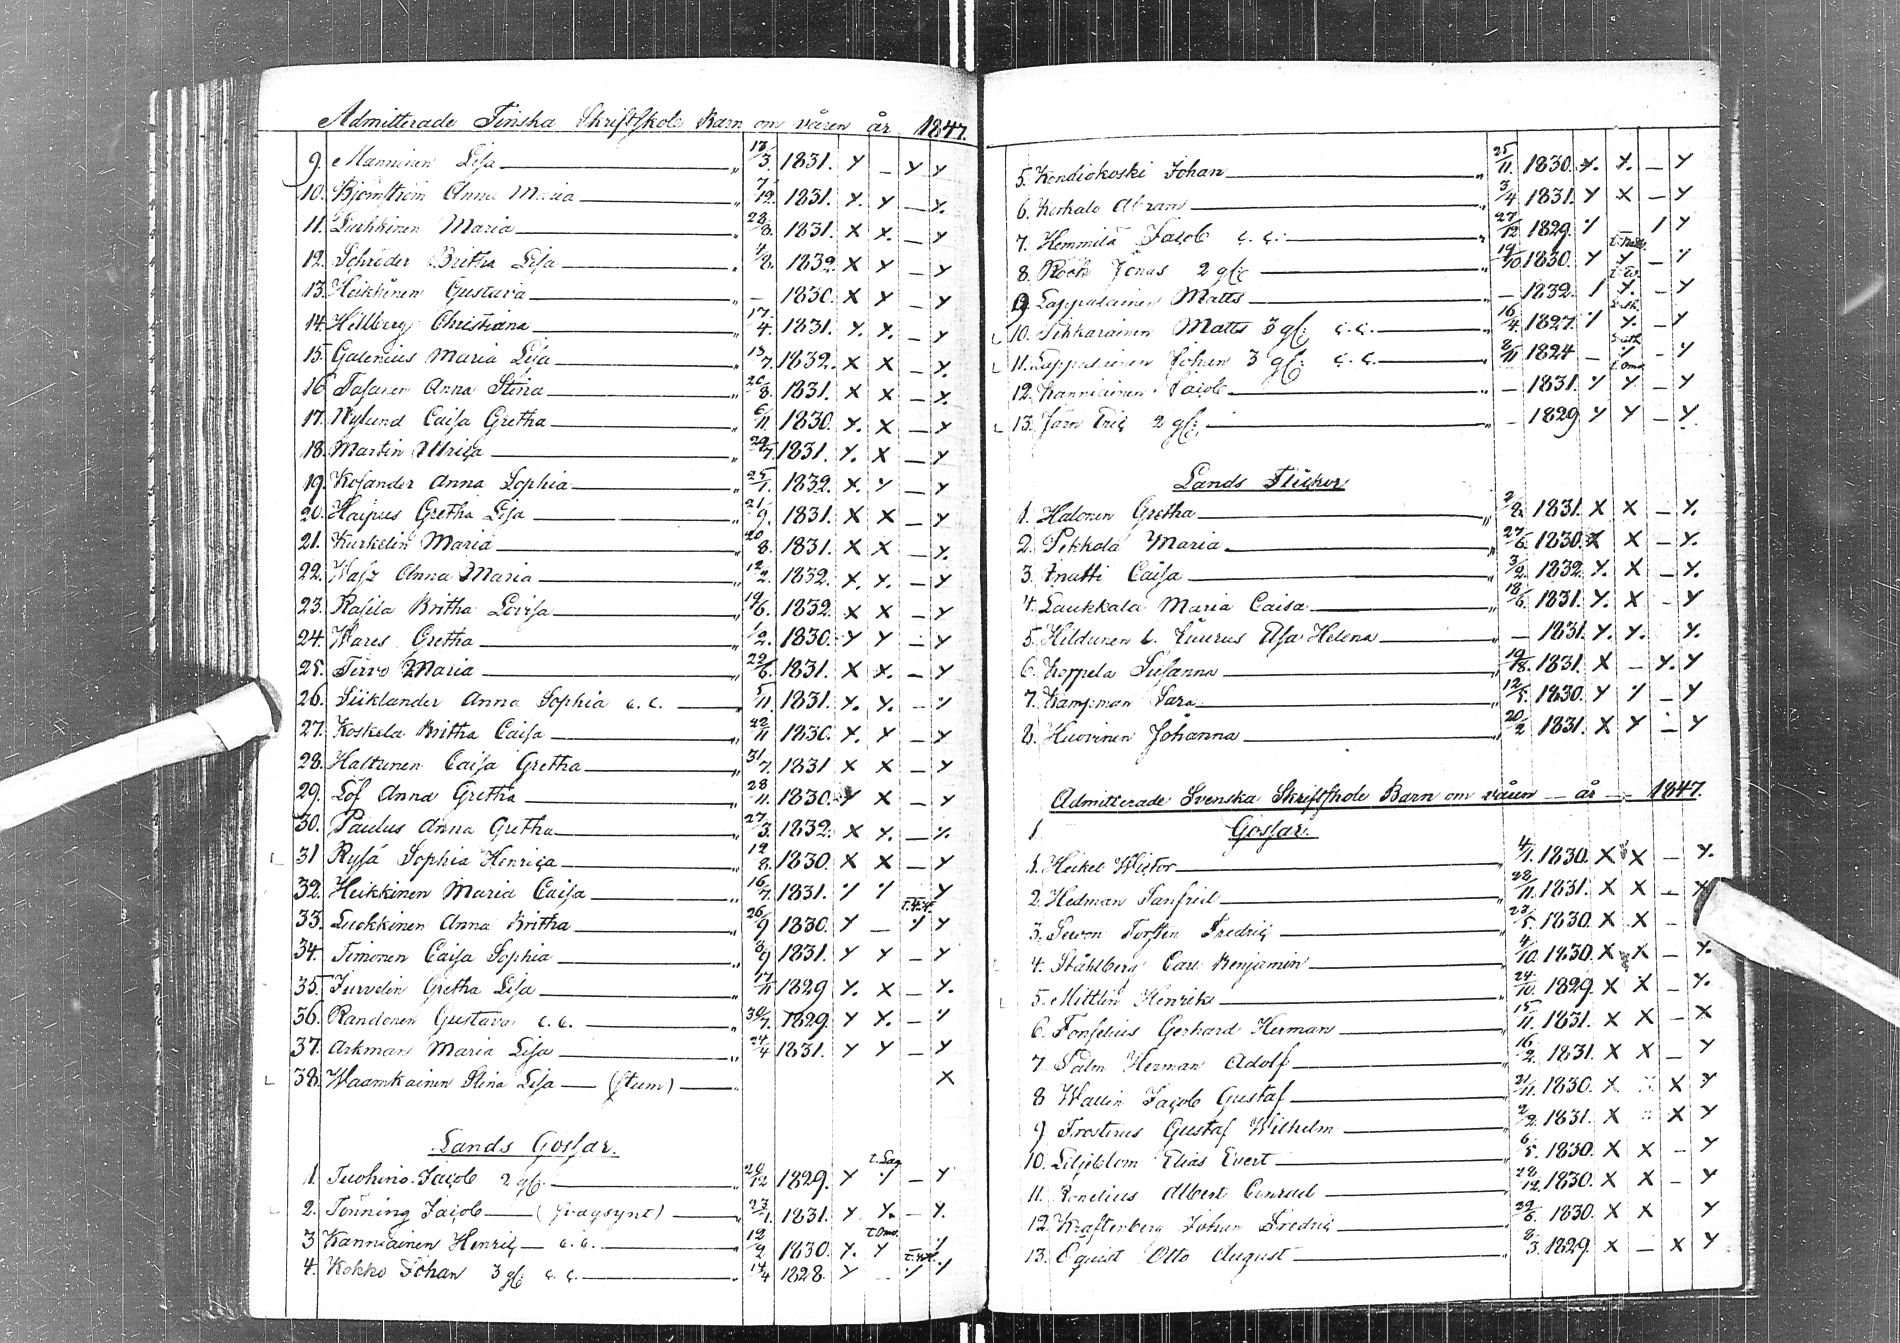 Admitterade Finska Skriftskole Barn om våren år 1847.
9. Manninen Lisa " 13/3. 1831. Y _ Y Y
10. Björnström Anna Maria " 7/12. 1831. Y. Y _ Y.
11. Luhkinen Maria " 28/8. 1831. X X. _ Y
12. Schröder Britha Lisa " 4/8. 1832. X Y _ Y
13. Heikkinen Gustava " – 1830. X Y _ Y
14. Hellberg Christiana " 17/4. 1831. Y. Y. _ Y
15. Galenius Maria Lisa " 13/7. 1832. X X _ Y.
16. Tasanen Anna Stina " 26/8. 1831. X X _ Y.
17. Nylund Caisa Gretha " 6/11 1830. Y. X _ Y
18. Martin Ulrica " 29/7. 1831. Y. X _ Y
19. Kosander Anna Sophia " 25/1. 1832. X. Y _ Y
20. Haipus Gretha Lisa " 21/9. 1831. X X _ Y
21. Kurkelin Maria " 20/8. 1831. X X _ Y.
22. Wasz Anna Maria " 12/2. 1832. X. Y. _ Y
23. Rasila Britha Lovisa " 19/6. 1832. X X _ Y
24. Wares Gretha " 1/2. 1830. Y Y _ Y
25. Tirro Maria " 29/6. 1831. X X. _ Y
26. Siiklander Anna Sophia c. c. " 5/11. 1831. Y. Y. _ Y
27. Koskela Britha Caisa " 22/11 1830. Y. Y _ Y
28. Haltunen Caisa Gretha " 31/7. 1831 X X _ Y
29. Löf Anna Gretha " 28/11. 1830. Y X _ Y
30. Paulus Anna Gretha " 27/3. 1832. X Y. _ Y.
31 Rysä Sophia Henrica " 12/8. 1830. X X _ Y
32. Heikkinen Maria Caisa " 16/7. 1831. Y Y Y
33. Luokkinen Anna Britha " 26/9 1830. Y _ Y Y
34. Timonen Caisa Sophia " 3/9 1831. Y Y _ Y
35. Jurvelin Gretha Lisa " 17/11 1829 Y. X _ Y.
36. Randonen Gustava c. c. " 30/7. 1829. Y Y. _ Y
37. Arkman Maria Lisa " 24/4 1831. Y Y _ Y
38. Waamkainen Stina Lisa (stum) " X
Lands Gossar.
1. Tuohino Jacob 2 gg: " 20/12 1829. Y Y _ Y
2. Tönning Jacob (svagsynt) " 23/1. 1831. Y Y. _ Y.
3 Kanniainen Henric c. c. " 12/2 1830. Y. Y Y
4. Kokko Johan 3 gg: c. c. " 14/4 1828. Y _ Y Y
5. Kondiokoski Johan " 25/11. 1830. Y. Y. _ Y
6. Kerkalo Abram " 3/4 1831. Y X _ Y
7. Hemmilä Jacob c. c: " 27/12 1829. Y 1 Y
8. Röök Jonas 2 gg: " 19/10 1830. Y Y _ Y
9 Lappalainen Matts " – 1832. 1 Y. _ Y
10. Pikkarainen Matts 3 gg: c. c. " 16/4. 1827. 1 Y. _ Y
11. Lappalainen Johan 3 gg: c. c. " 8/11 1824 _ Y _ Y
12. Kanniainen Jacob " – 1831. Y Y _ Y
13. Järn Eric 2 gg: " – 1829 Y Y _ Y
Lands Flickor
1. Halonen Gretha " 2/2. 1831. X X _ Y.
2. Pikkola Maria " 27/6. 1830. X X _ Y.
3. Knutti Caisa " 3/2. 1832. Y. X _ Y.
4. Laukkala Maria Caisa " 18/6. 1831. Y. X _ Y
5. Hildunen Asa Helena " – 1831. Y. Y. Y.
6. Koppela Susanna " 19/8. 1831. X _ Y. Y
7. Kampman Sara " 12/5. 1830. Y Y _ Y
8. Huovinen Johanna " 20/2 1831. X Y _ Y
Admitterade Svenska Skriftskole Barn om våren år 1847.
Gossar.
1. Heikel Wictor " 4/1. 1830. X X _ Y.
2. Hedman Sanfrid " 28/11. 1831. X X _ X
3. Sewon Torsten Fredric " 23/5. 1830. X X _
4. Ståhlberg Carl Benjamin " 4/10. 1830. X X _ Y.
5. Mittlin Henrik " 24/10. 1829. X X _ Y.
6. Fonselius Gerhard Herman " 15/11. 1831. X X _ X
7. Palm Herman Adolf " 16/2. 1831. X X _ Y
8 Wallin Jacob Gustaf " 21/11. 1830. X X Y
9 Frosterus Gustaf Wilhelm " 2/2. 1831. X X Y
10. Liljeblom Elias Evert " 6/5. 1830. X X _ Y
11. Ronelius Albert Conrad " 28/12. 1830. X X _ Y
12. Kraftenberg Johan Fredric " 22/6. 1830. X X Y
13. Öquist Otto August " 8/3. 1829. X _ X Y